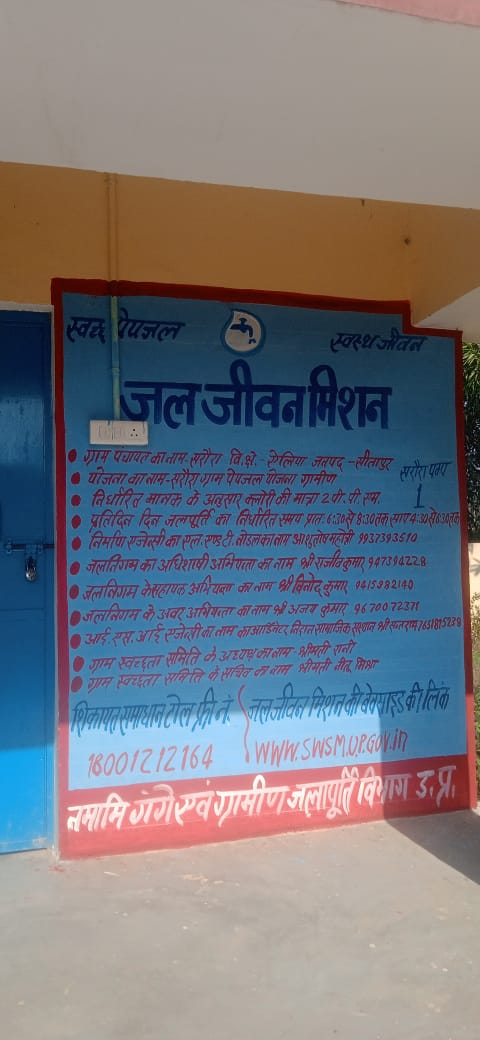 स्वच्छ पेयजल
स्वस्थ जीवन
जल जीवन मिशन
ग्राम पंचायत का नाम- सरौरा वि.क्षे.- ऐलिया जनपद - सीतापुर
योजना का नाम- सरौरा ग्राम पेयजल योजना ग्रामीण
सरौरा पम्प
1
निर्धारित मानक के अनुसार क्लोरीन की मात्रा 2 पी.पी.एम.
प्रतिदिन दिन जलापूर्ति का निर्धारित समय प्रातः 6:30 से 8:30 तक सायं 4:30 से 6:30 तक
निर्माण एजेन्सी का एल.एण्ड.टी. नोडल का नाम आशुतोष महंती 9937393510
जलनिगम का अधिशाषी अभियन्ता का नाम श्री राजीव कुमार 9473942 28
जलनिगम के सहायक अभियन्ता का नाम श्री विनोद कुमार 9415982140
जलनिगम के अवर अभियन्ता का नाम श्री अजय कुमार 9670072371
आई.एस.आई एजेन्सी का नाम काआर्डिनेटर सामाजिक संस्थान श्री
ग्राम स्वच्छता समिति के अध्यक्ष का नाम श्रीमती रानी
ग्राम स्वच्छता समिति के सचिव का नाम श्रीमती नीतू मिश्रा
शिकायत समाधान टोल फ्री नं.
18001212164
जल जीवन मिशन की वेबसाइड की लिंक
WWW.SWSM.U.P.GOV.in
नमामि गंगे एवं ग्रामीण जलापूर्ति विभाग उ.प्र.